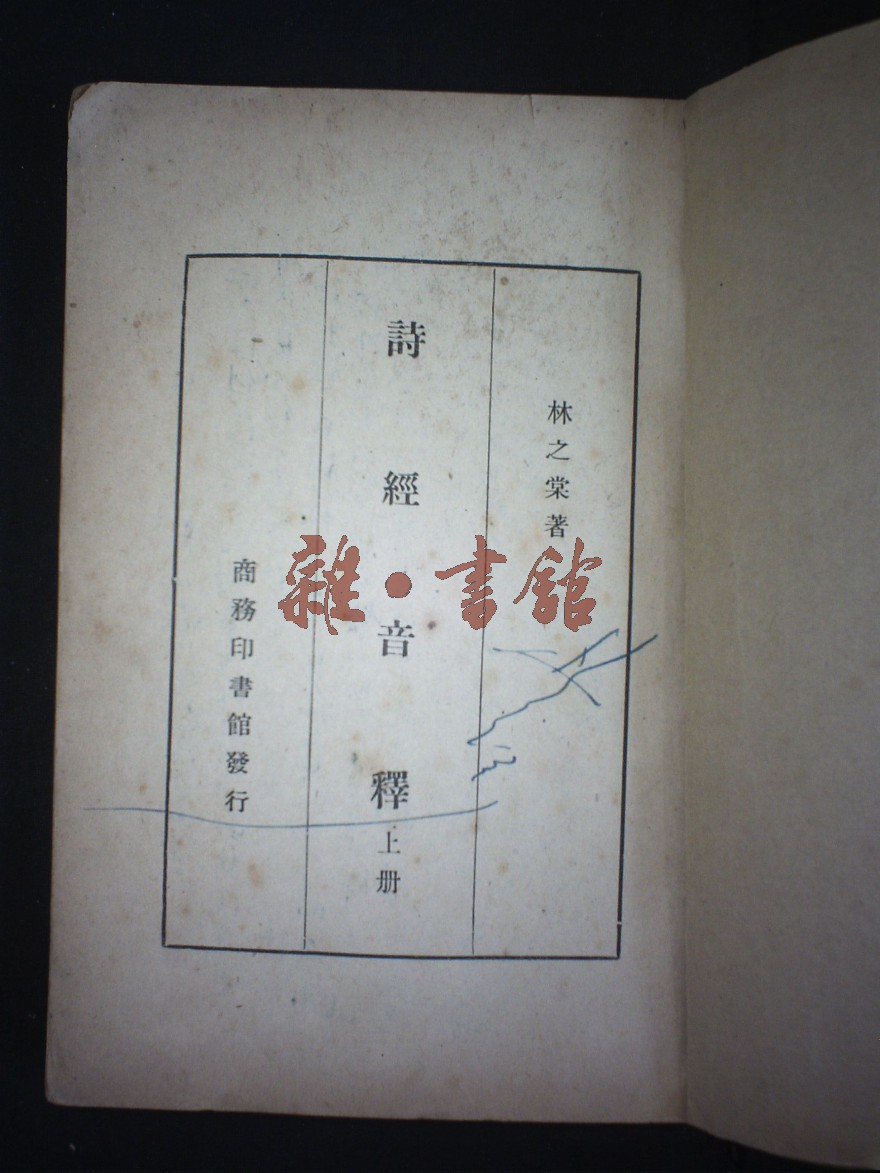 林之棠著
詩經音釋上册
商務印書館發行
雜·書館